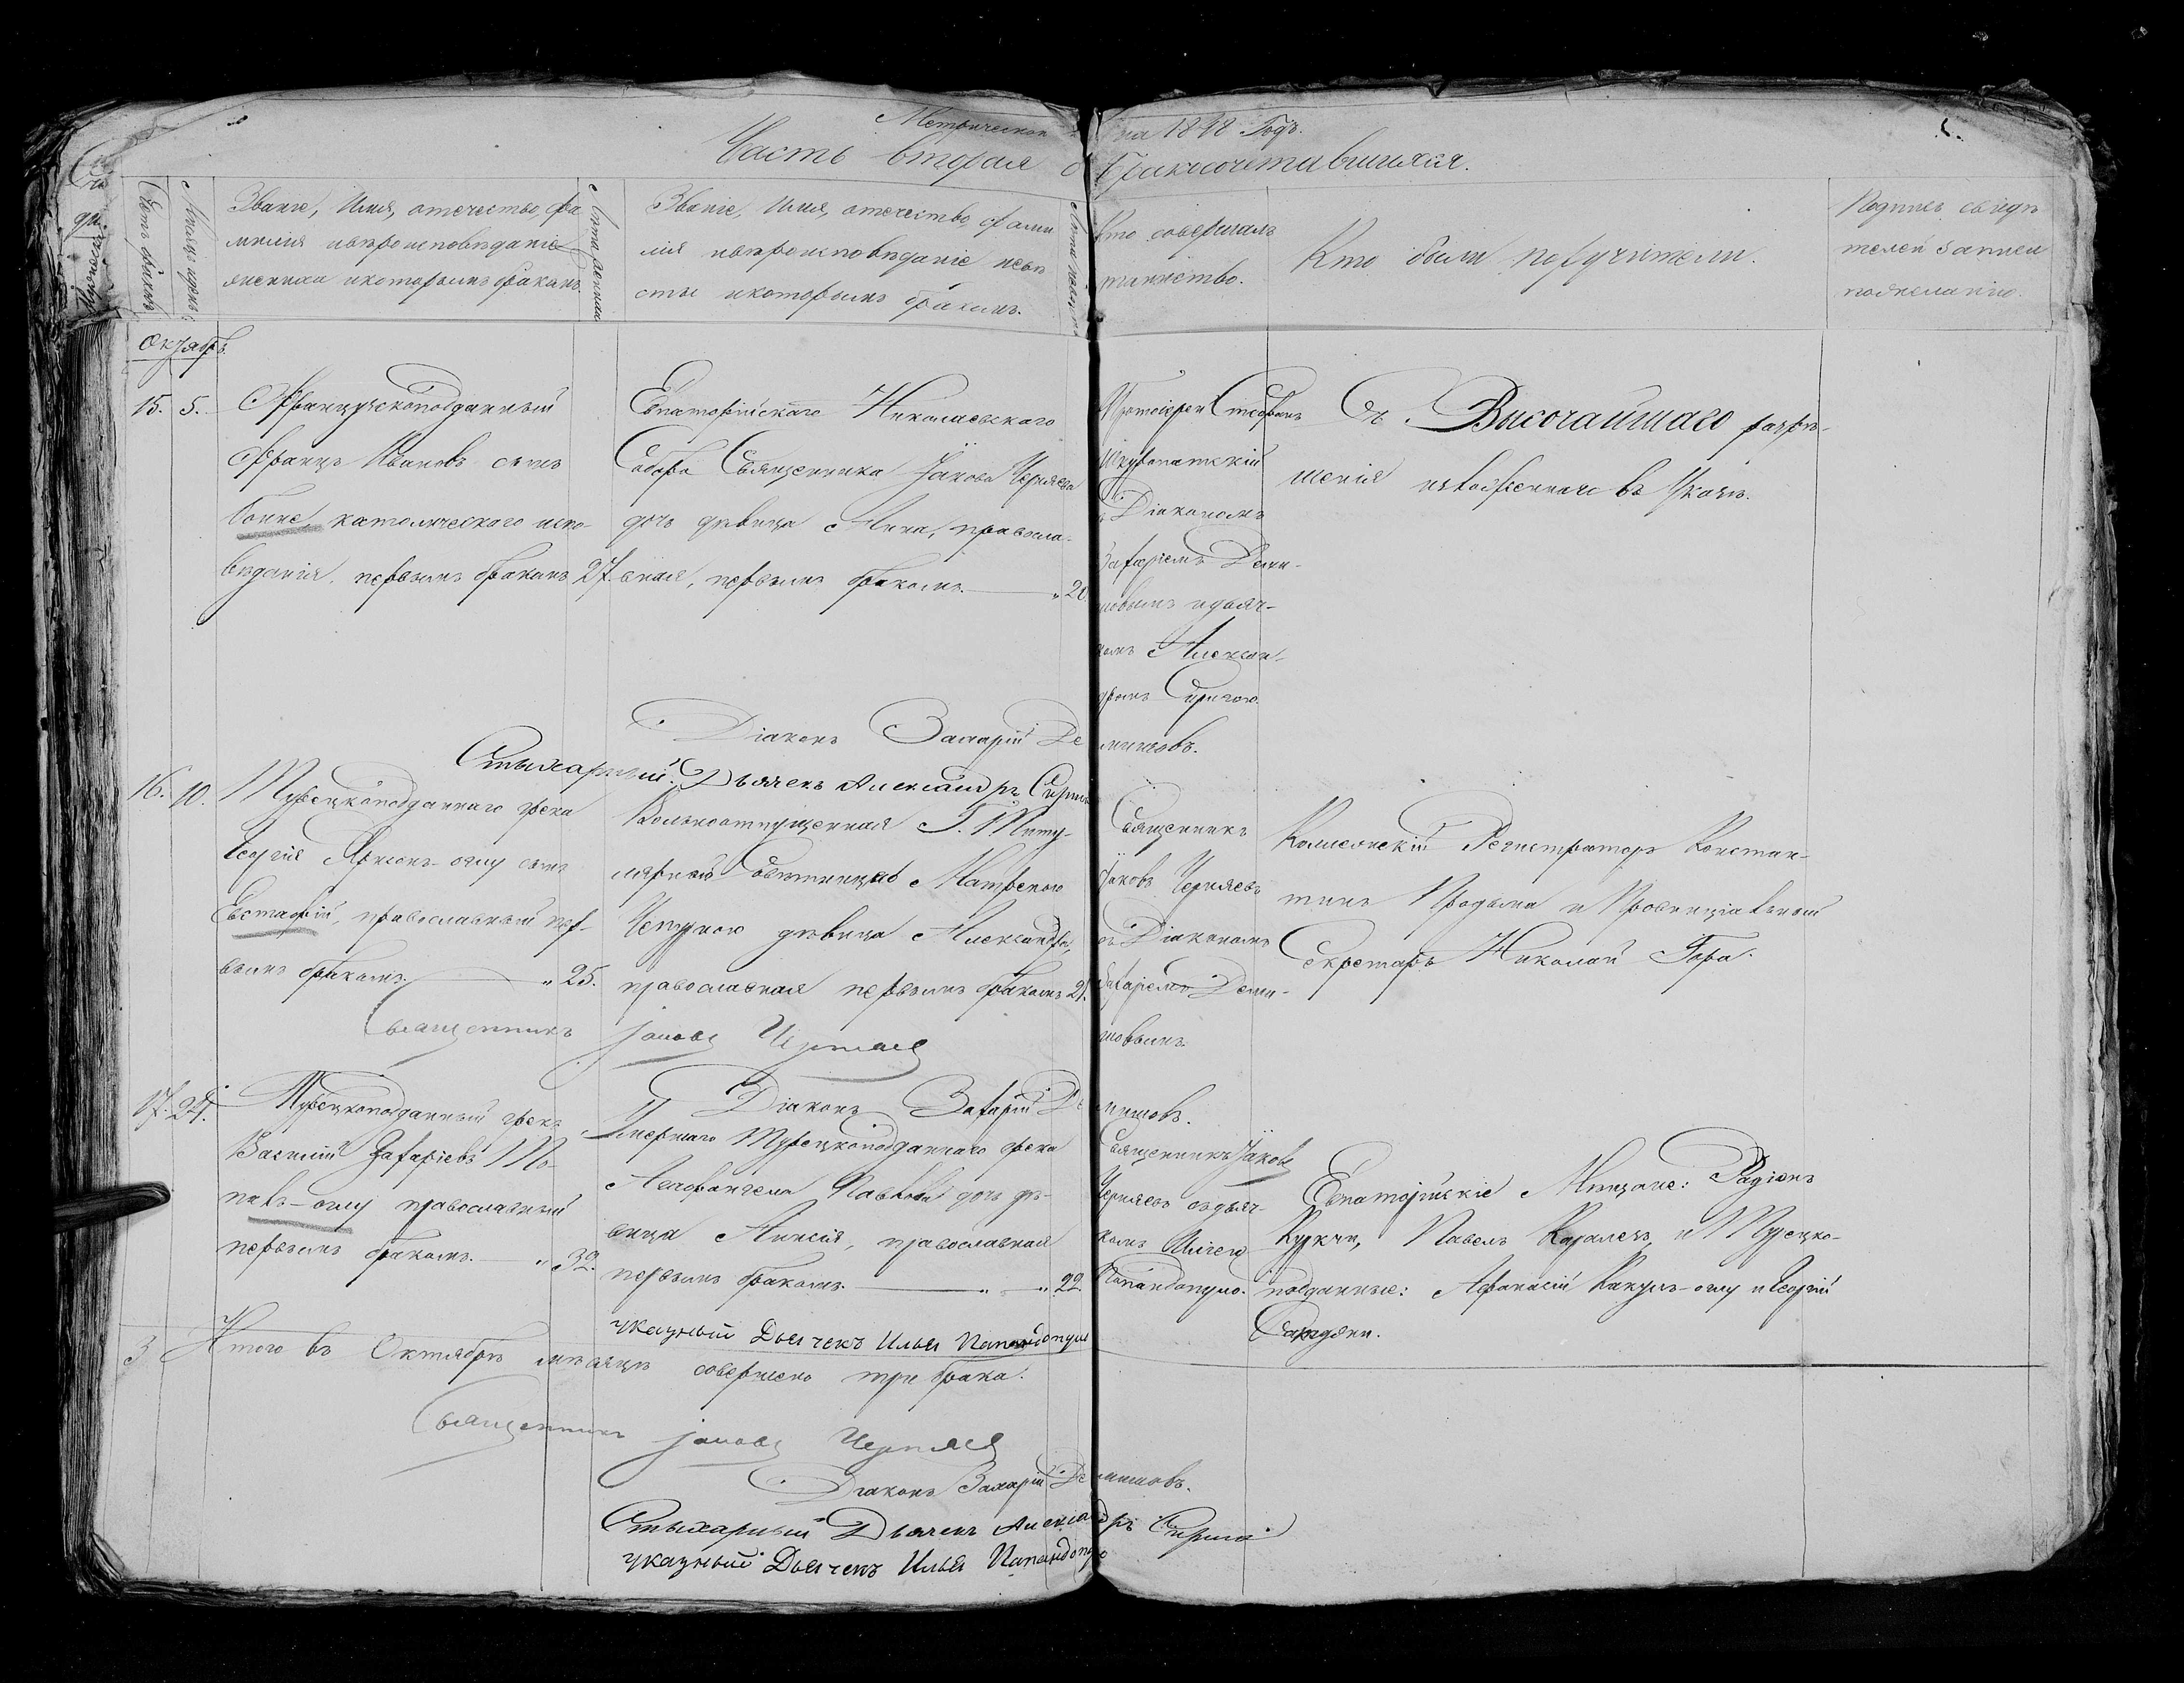 Метрической на 1848 Годъ.
Часть вторая о бракосочетавшихся.
Счетъ браковъ
Мѣсяцъ и день
Званіе, Имя, отечество, фа
милія и вѣроисповѣданіе
жениха и которымъ бракомъ.
Лѣта жениха
Званіе, Имя, отечество, фами
лія и вѣроисповѣданіе невѣ
сты и которымъ бракомъ.
Лѣта невѣсты
Кто совершалъ
таинство.
Кто были поручители.
Подпись свидѣ
телей записи
по желанію.
Октябрь
15. 5. Французскоподданный
Францъ Ивановъ сынъ
католическаго испо-
вѣданія, первымъ бракомъ 27.
Евпаторійскаго Николаевскаго
Собора Священника Іакова Черняева
дочь дѣвица Анна, правосла-
вная, первымъ бракомъ. „ 20
Протоіерей Стефанъ
Діакономъ
Захаріемъ Деми-
шовымъ и дьяч-
комъ Алексан-
дромъ Сиригою.
Съ Высочайшаго разрѣ-
шенія изображеннаго въ Указѣ.
Діаконъ Захарій Демишовъ.
Стихарный Дьячекъ Александръ Сириг
16. 10. Турецкоподданнаго грека
Георгія сынъ
Евстафій, православный пер-
вымъ бракомъ. „ 25.
Вольноотпущенная Г. Титу-
лярной Совѣтницею Матреною
дѣвица Александра,
православная первымъ бракомъ 21.
Священникъ
Іаковъ Черняевъ
съ Діакономъ
Захаріемъ Деми-
шовымъ.
Коллежскій Регистраторъ Констан-
тинъ и Провинціальный
Секретарь Николай Гора.
Священникъ Іаковъ Черняевъ
Діаконъ Захарій Демишовъ.
17. 24. Турецкоподданный грекъ
Василій Захаріевъ
православный
первымъ бракомъ. „ 32.
Умершаго Турецкоподданнаго грека
Павлова дочь дѣ-
вица православная
первымъ бракомъ. „ „ 22
Священникъ Іаковъ
Черняевъ съ дьяч-
комъ Иліею
Папандопуло.
Евпаторійскіе Мѣщане: Радіонъ
Куркчи, Павелъ и Турецко-
подданные: Афанасій и Георгій
указный Дьячекъ Илья Папандопуло
3 Итого въ Октябрѣ мѣсяцѣ совершено три брака.
Священникъ Іаковъ Черняевъ
Діаконъ Захарій Демишовъ.
Стихарный Дьячекъ Александръ Сирига
указный Дьячекъ Илья Папандопуло